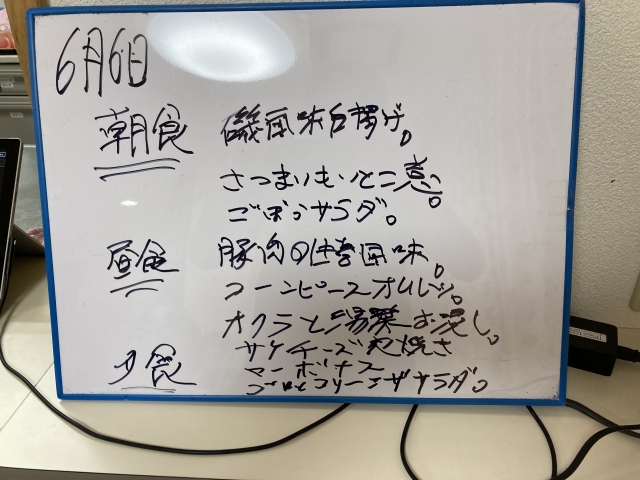 6月6日
朝食 磯風味白揚げ。
さつまいもいとこ煮。
ごぼうサラダ。
昼食 豚肉の生姜風味。
コーンピースオムレツ。
オクラと湯葉お浸し。
夕食 サケチーズ包焼き
マーボナス
サラダ。